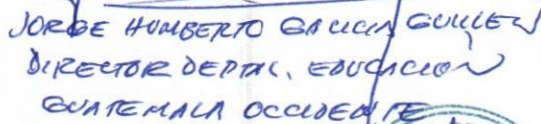 JORGE HUMBERTO GALICIA GUILLEN
DIRECTOR DEPTAL. EDUCACIÓN
GUATEMALA OCCIDENTE